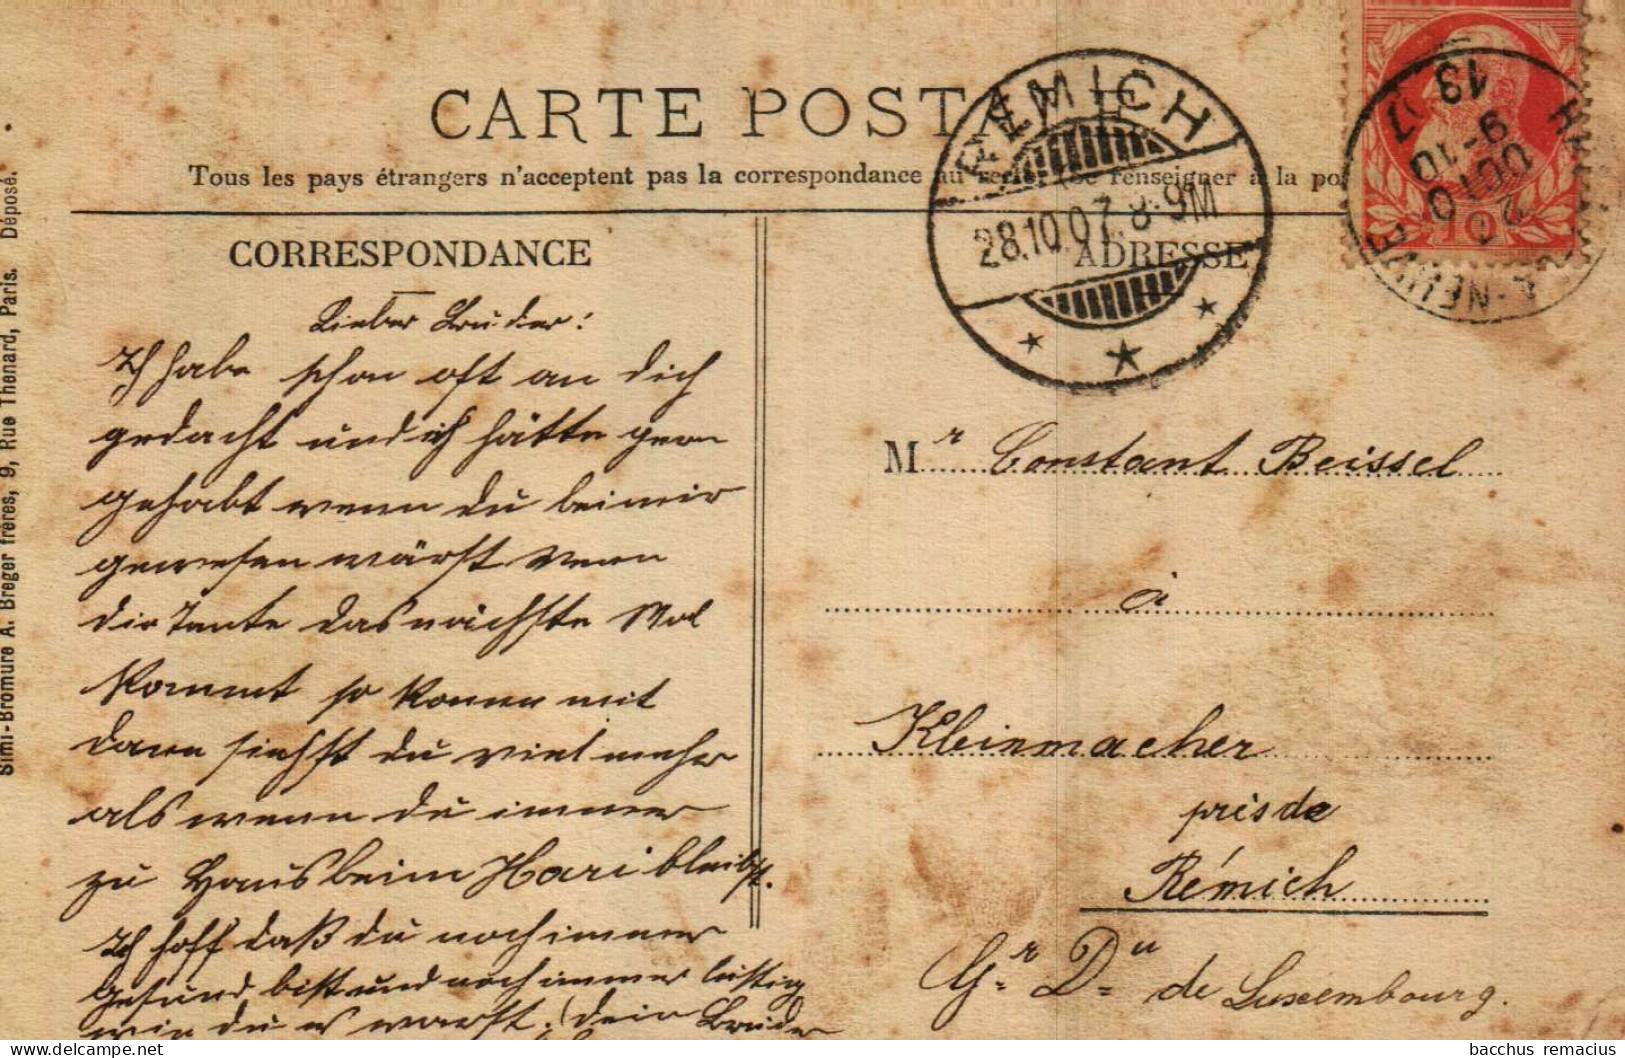 CARTE POSTALE
Tous les pays étrangers n'acceptent pas la correspondance au verso (Se renseigner à la po
CORRESPONDANCE
ADRESSE
REMICH
28.10.07. 8-9M
13
9-10
07
OCT
10
Simi-Bromure A. Breger frères, 9, Rue Thénard, Paris. Déposé.
Lieber Bruder!
Ich habe schon oft an dich
gedacht und ich hätte gern
gehabt wenn du bei mir
gewesen wärst Wenn
die Tante das nächste Mal
kommt so komm mit
dann siehst du viel mehr
als wenn du immer
zu Haus beim Hari bleibst.
Ich hoff daß du noch immer
gesund bist und noch immer lustig
wie du es warst. Dein Bruder
Mr Constant Beissel
à
Kleinmacher
près de
Rémich
Gr. Du. de Luxembourg.
bacchus remacius